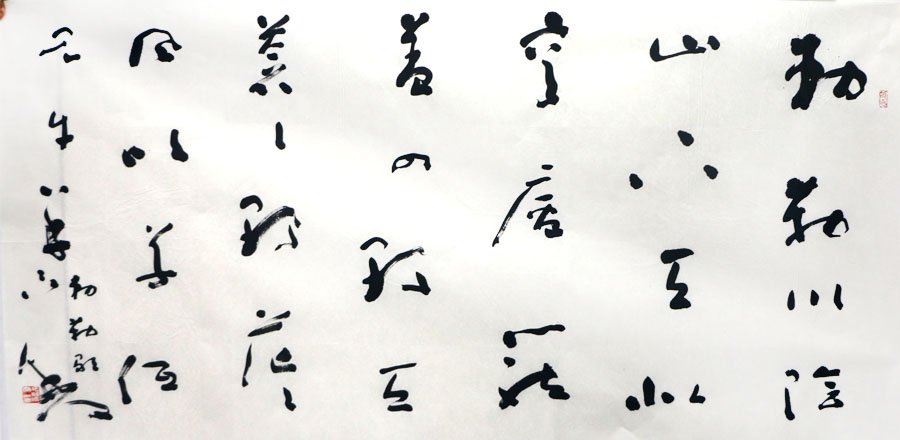 勅勒川陰
山下天似
穹廬籠
蓋四野天
蒼〻野茫〻
風吹草低
見牛羊
勅勒歌